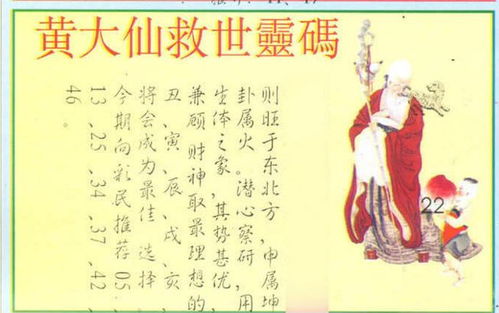 黄大仙救世靈碼
则旺于东北方，申属坤
卦属火。潜心察研，用
生体之象，其势甚优，
兼顾财神取最理想的
丑、寅、辰、戌、亥，
将会成为最佳选择，
今期向彩民推荐05、
13、25、34、37、42、
46。
22